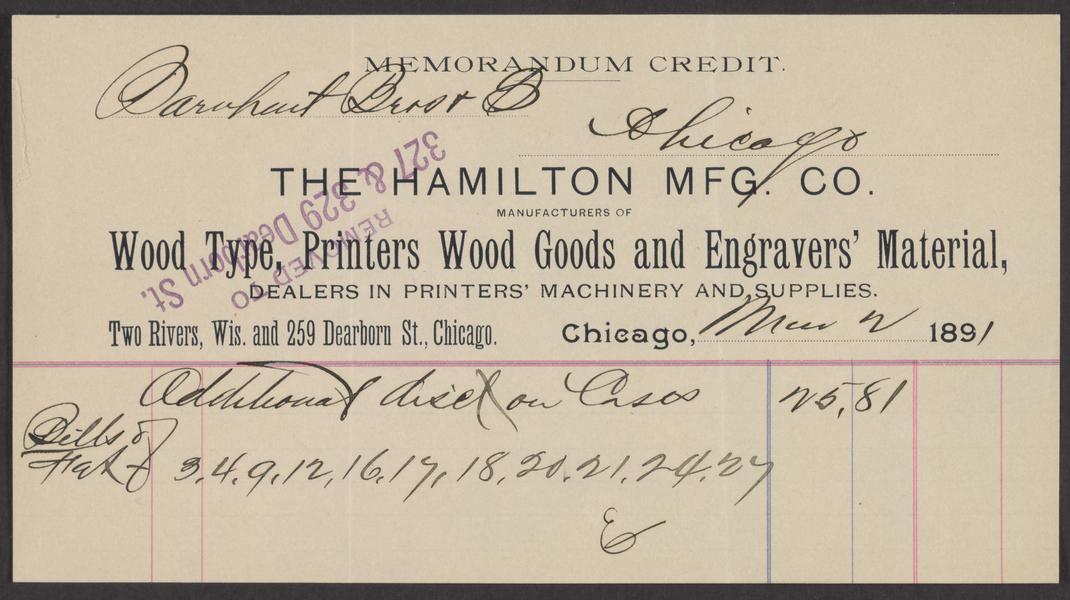 MEMORANDUM CREDIT.
Barnhart Bros &
Chicago
THE HAMILTON MFG. CO.
MANUFACTURERS OF
Wood Type, Printers Wood Goods and Engravers' Material,
DEALERS IN PRINTERS' MACHINERY AND SUPPLIES.
Two Rivers, Wis. and 259 Dearborn St., Chicago.
Chicago, Mar 2 1891
REMOVED TO
327 & 329 Dearborn St.
Additional disct on Cases 25.81
Bills of
3, 4, 9, 12, 16, 17, 18, 20, 21, 24, 27